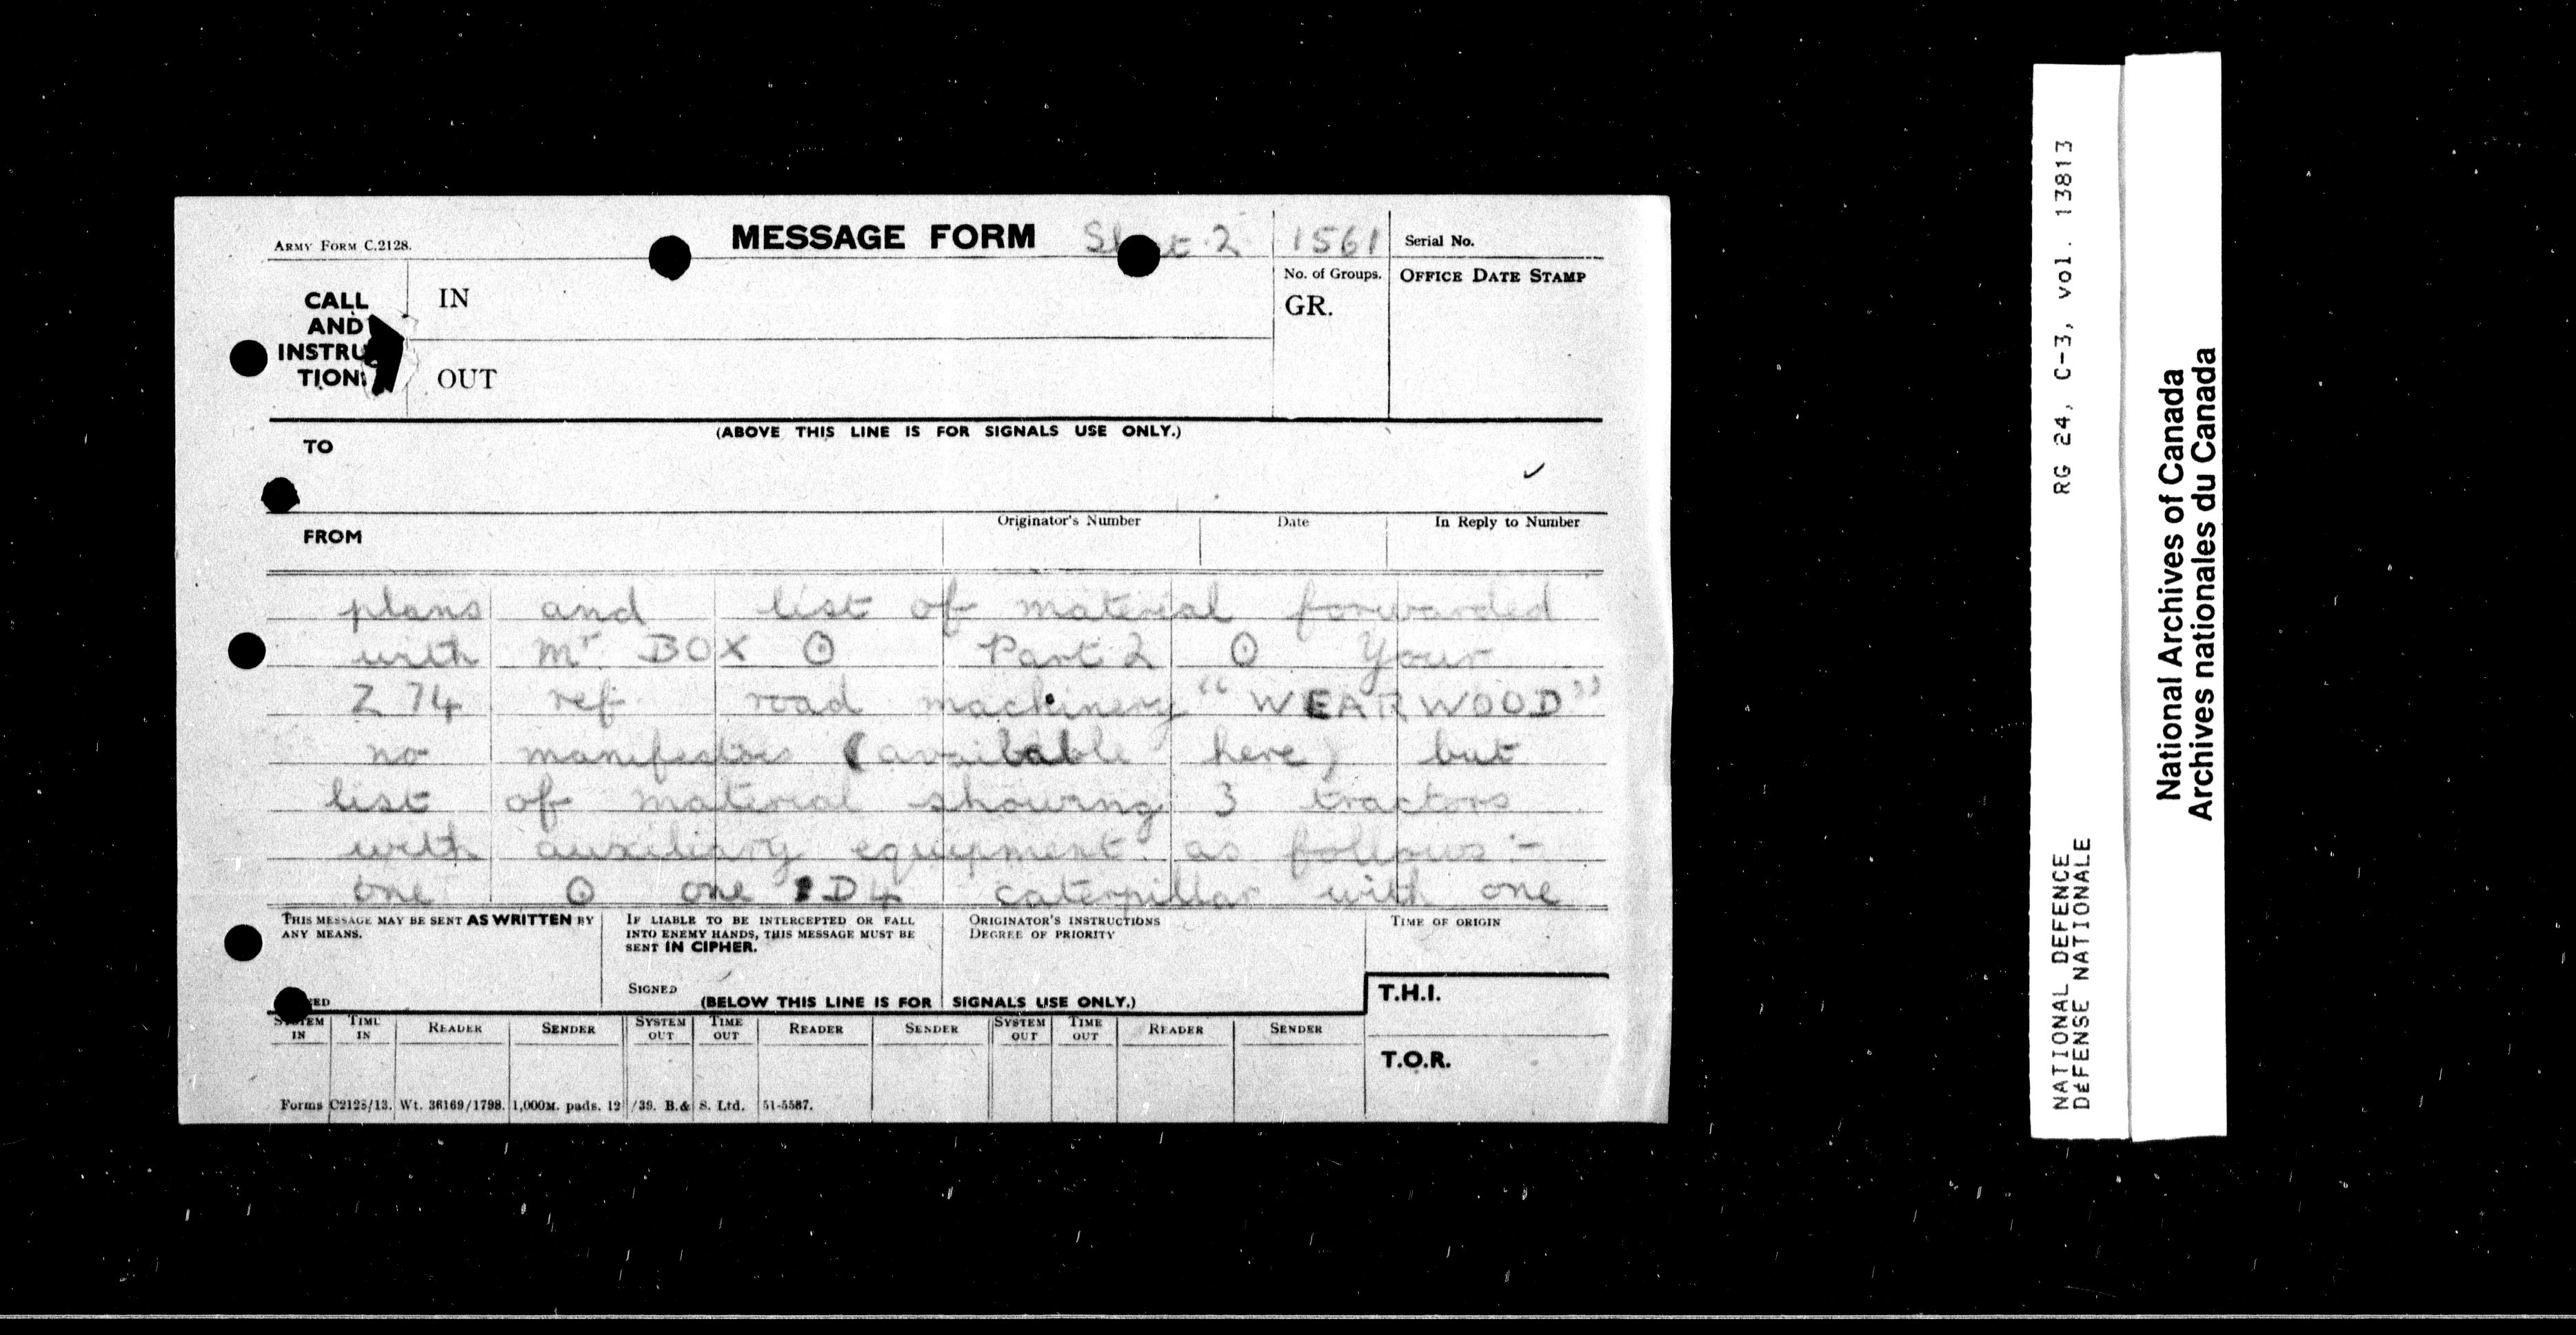 ARMY FORM C.2128.
MESSAGE FORM
2
1561
Serial No.
CALL
AND
INSTRU
TION
IN
OUT
No. of Groups.
GR.
OFFICE DATE STAMP
(ABOVE THIS LINE IS FOR SIGNALS USE ONLY.)
TO
FROM
Originator's Number
Date
In Reply to Number
plans and list of material forwarded
with Mr BOX ⊙ Part 2 ⊙ Your
Z 74 ref road machinery "WEARWOOD"
no (available here) but
list of material showing 3 tractors
with auxiliary equipment as follows :-
one ⊙ one D4 caterpillar with one
THIS MESSAGE MAY BE SENT AS WRITTEN BY
ANY MEANS.
IF LIABLE TO BE INTERCEPTED OR FALL
INTO ENEMY HANDS, THIS MESSAGE MUST BE
SENT IN CIPHER.
ORIGINATOR'S INSTRUCTIONS
DEGREE OF PRIORITY
TIME OF ORIGIN
SIGNED
(BELOW THIS LINE IS FOR SIGNALS USE ONLY.)
T.H.I.
SYSTEM IN
TIME IN
READER
SENDER
SYSTEM OUT
TIME OUT
READER
SENDER
SYSTEM OUT
TIME OUT
READER
SENDER
T.O.R.
Forms C2128/13. Wt. 36169/1798. 1,000M. pads. 12/39. B.& S. Ltd. 51-5587.
RG 24, C-3, vol. 13813
NATIONAL DEFENCE
DÉFENSE NATIONALE
National Archives of Canada
Archives nationales du Canada